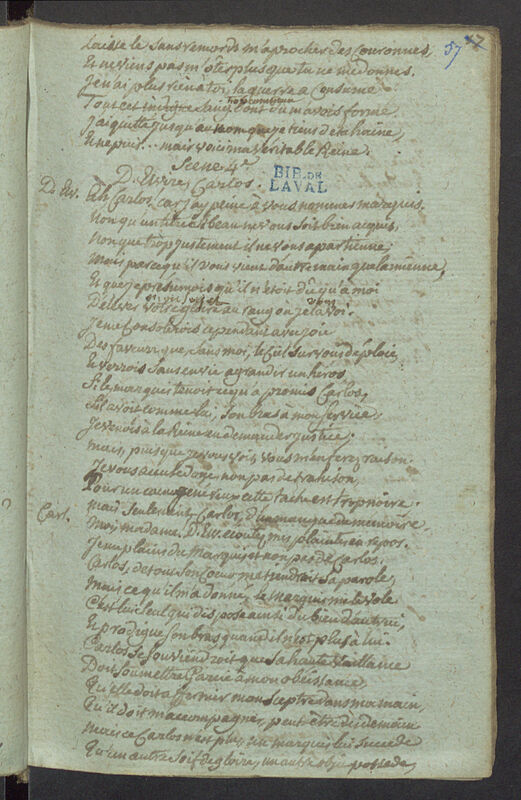 57
Laisse le sans remords m'aprocher des Couronnes,
Et ne viens pas m'ôter plus que tu ne me donnes.
Je n'ai plus rien a toi, la guerre a Consumé
Tout cet sang dont tu m'avois formé
J'ai quitté jusqu'au nom que je tiens de ta haine,
Et ne puis... mais voici ma véritable Reine.
Scene 4e
D. Elvire, Carlos.
BIB. DE
LAVAL
D. Elv. Ah Carlos, car j'ay peine à vous nommer marquis,
Non qu'un titre si beau ne vous soit bien acquis,
Non que trop justement il ne vous apartienne,
Mais parcequ'il vous vient d'autre main que la mienne,
Et que je présumois qu'il n'étoit dû qu'à moi
D'élever votre gloire au rang où je la voi.
Je me Consolerois cependant avec joie
Des faveurs que sans moi, le Ciel sur vous déploie,
Et verrois sans envie agrandir un héros
Si le marquis tenoit ce qu'a promis Carlos,
S'il avoit comme lui, son bras à mon service,
Je venois à la Reine en demander justice;
mais, puisque je vous voi, vous m'en ferez raison.
Je vous accuse donc, non pas de trahison,
Pour un cœur généreux cette tache est trop noire
mais seulement, Carlos, d'un manque de mémoire,
Carl. Moi, madame. D. Elv. écoutez mes plaintes en repos.
Je me plains du Marquis et non pas de Carlos,
Carlos, de tout son Cœur me tiendroit sa parole,
mais ce qu'il m'a donné, le Marquis me le vole
C'est lui seul qui dispose ainsi du bien d'autrui,
Et prodigue son bras quand il n'est plus à lui.
Carlos se souviendroit que sa haute vaillance
Doit soumettre Garcie à mon obéissance
Qu'elle doit affermir mon Sceptre dans ma main,
Qu'il doit m'accompagner, peut être dès demain
mais ce Carlos n'est plus, un marquis lui succède
Qu'un autre soif de gloire, un autre objet possede,